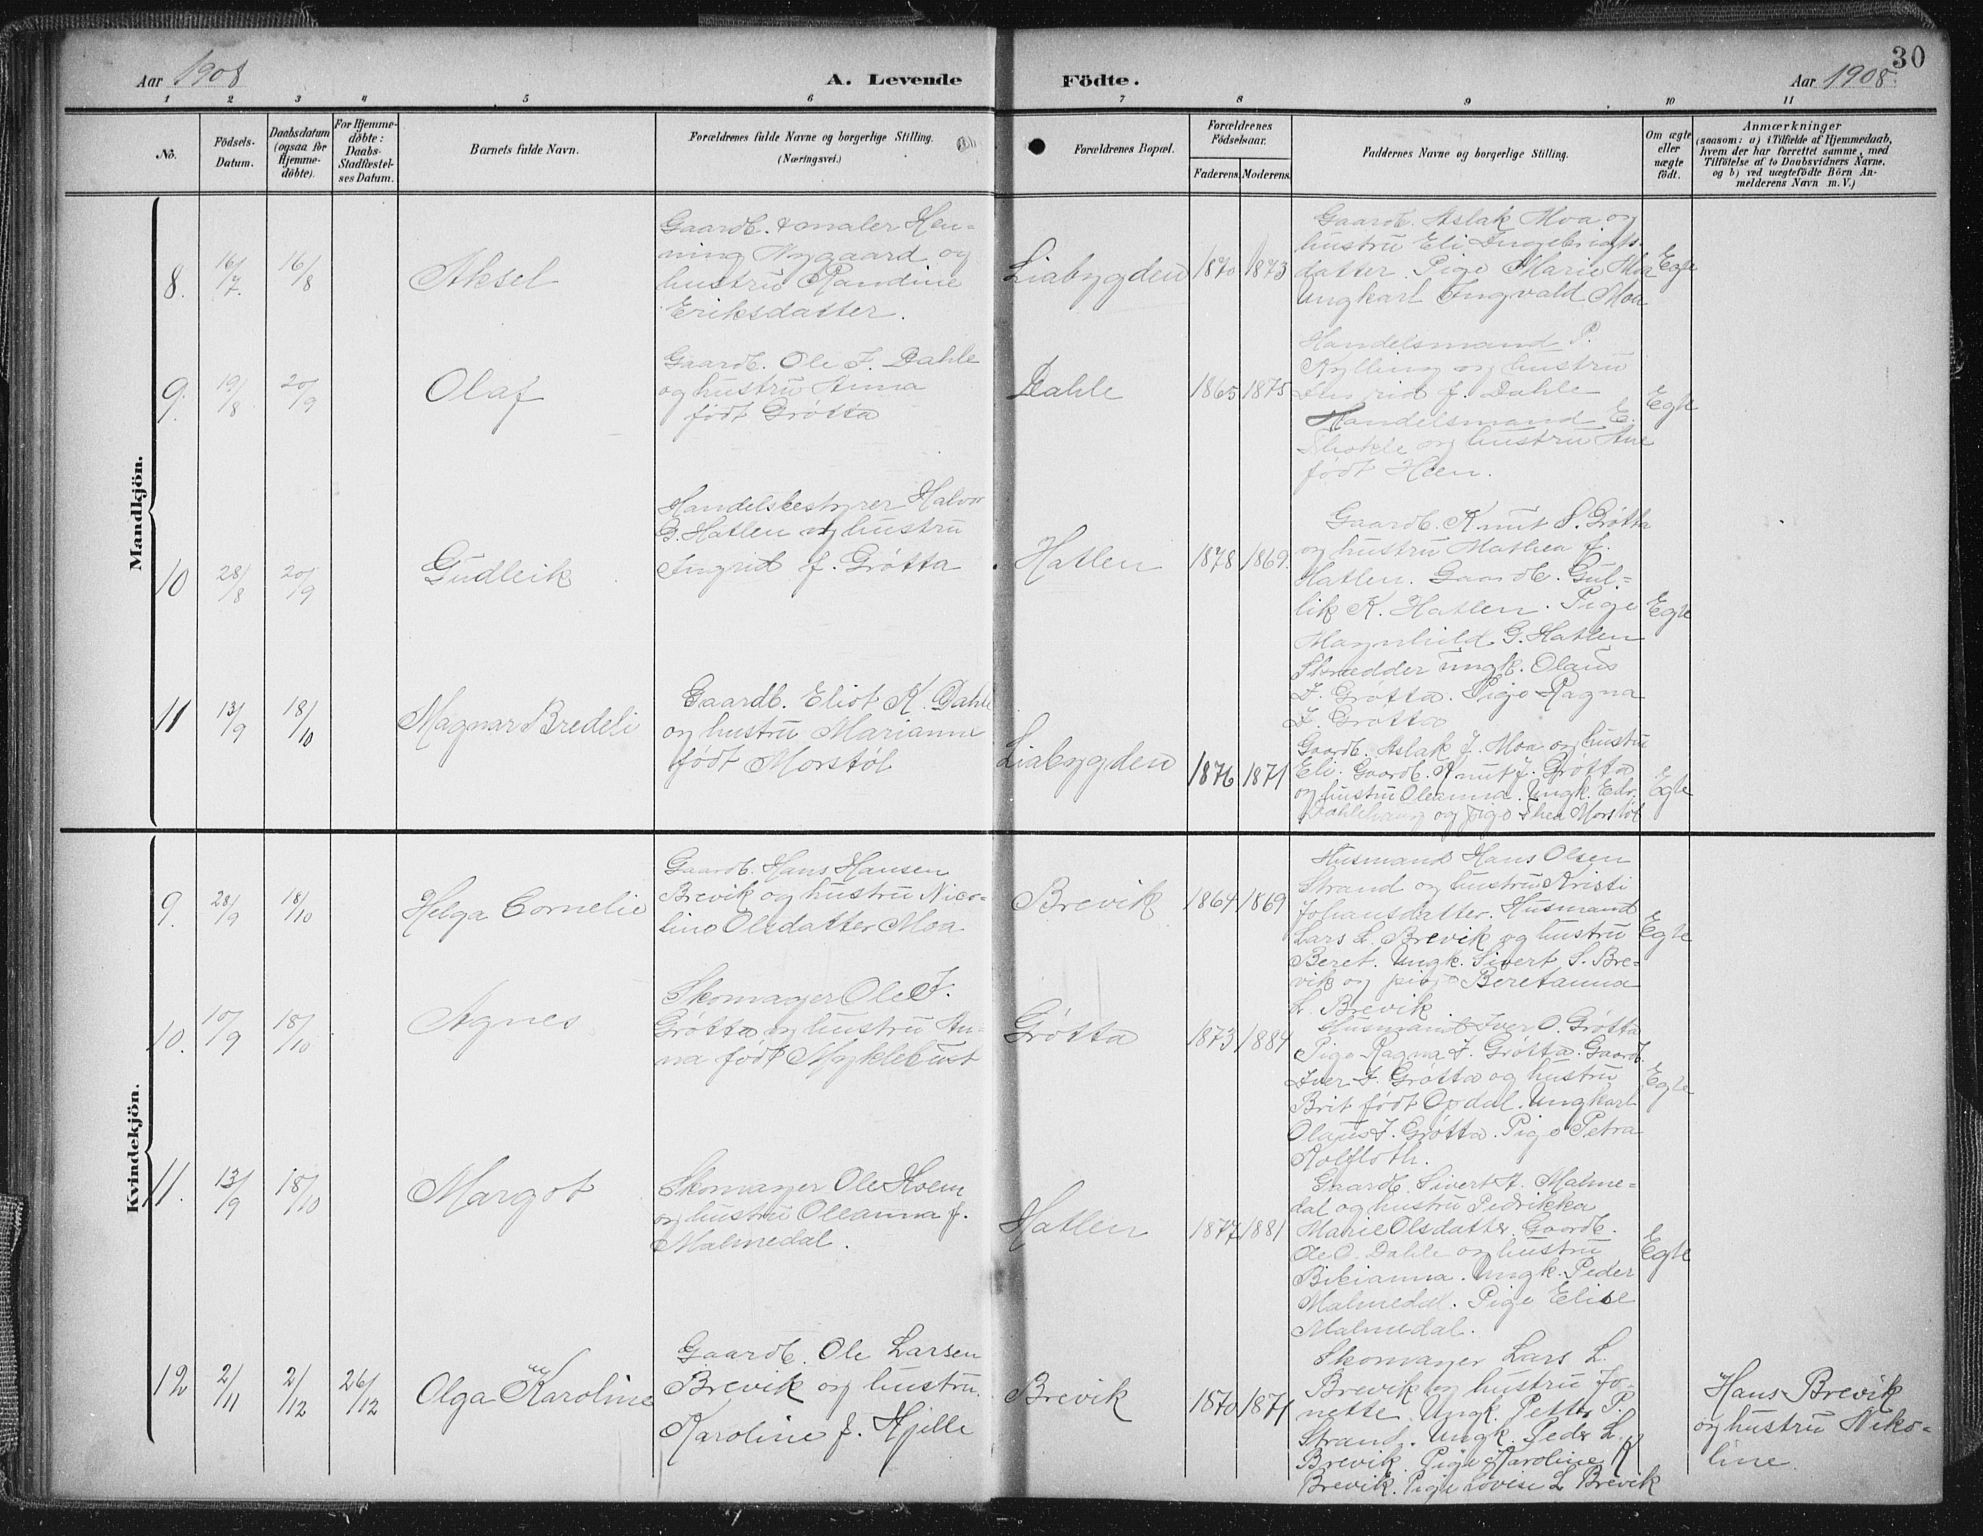 30
Aar 1908
A. Levende
Födte.
Aar 1908.
1 2 3 4 5 6 7 8 9 10 11
No.
Födsels-
Datum.
Daabsdatum
(ogsaa for
Hjemme-
döbte).
For Hjemme-
döbte:
Daabs-
Stadfæstel-
ses Datum.
Barnets fulde Navn.
Forældrenes fulde Navne og borgerlige Stilling.
(Næringsvei.)
Forældrenes Bopæl.
Forældrenes
Födselsaar.
Faderens. Moderens.
Faddernes Navne og borgerlige Stilling.
Om ægte
eller
uægte
födt.
Anmærkninger
(saasom: a) i Tilfælde af Hjemmedaab,
hvem der har forrettet samme, med
Tilföielse af to Daabsvidners Navne,
og b) ved uægtefödte Börn An-
melderens Navn m. V.)
Mandkjön.
8.
16/7
16/8
Aksel
Gaardb. & maler Hen-
ning Nygaard og
hustru Randine
Eriksdatter.
Liabygden
1870 1873
Gaardb. Aslak Moa og
hustru Eli Ingebrigts-
datter. Pige Marie Moa
Ungkarl Ingvald Moa
Egte
9.
19/8
20/9
Olaf
Gaardb. Ole J. Dahle
og hustru Anna
født Grøtta
Dahle
1865 1875
Handelsmand P.
Kylling og hustru
Ingrid f. Dahle
Handelsmand E.
og hustru Ane
født Heen.
Egte
10
28/8
20/9
Gudleik
Handelsbestyrer Halvor
G. Hatlen og hustru
Ingrid f. Grøtta
Hatlen
1878 1869.
Gaardb. Knut S. Grøtta
og hustru Mathea f.
Hatlen. Gaardb. Gul-
lik K. Hatlen. Pige
Magnhild G. Hatlen
Skrædder ungk. Olaus
J. Grøtta. Pige Ragna
J. Grøtta
Egte
11
13/9
18/10
Magnar Bredeli
Gaardb. Eliot K. Dahle
og hustru Marianne
født Morstøl
Liabygden
1876 1871
Gaardb. Aslak J. Moa og hustru
Eli. Gaardb. Knut J. Grøtta
og hustru Oleanna. Ungk. Edv.
Dahlehaug og pige Thea Morstøl
Egte
Kvindekjön.
9.
28/9
18/10
Helga Cornelie
Gaardb. Hans Hansen
Brevik og hustru Nico-
line Olsdatter Moa.
Brevik
1864 1869
Husmand Hans Olsen
Strand og hustru Kristi
Johansdatter. Husmand
Lars L. Brevik og hustru
Beret. Ungk. Sivert S. Bre-
vik og pige Beretanna
L. Brevik
Egte
10.
10/9
18/10
Agnes
Skomager Ole J.
Grøtta og hustru An-
na født Myklebust
Grøtta
1873 1884
Husmand Iver O. Grøtta
Pige Ragna J. Grøtta. Gaardb.
Iver J. Grøtta og hustru
Brit født Opdal. Ungkarl
Olaus J. Grøtta. Pige Petra
Kolfloth.
Egte
11.
13/9
18/10
Margot
Skomager Ole Hoem
og hustru Oleanna f.
Malmedal.
Hatlen
1877 1881
Gaardb. Sivert A. Malme-
dal og hustru Pedrikka
Marie Olsdatter. Gaardb.
Ole O. Dahle og hustru
Ungk. Peder
Malmedal. Pige Elise
Malmedal.
Egte
12
2/11
2/12
26/12
Olga Karoline
Gaardb. Ole Larsen
Brevik og hustru
Karoline f. Hjelle
Brevik
1870 1871
Skomager Lars L.
Brevik og hustru Jo-
nette. Ungk. Petter P.
Strand. Ungk. Peder L.
Brevik. Pige Karoline K
Brevik. Pige Lovise L Brevik
Hans Brevik
og hustru Niko-
line.